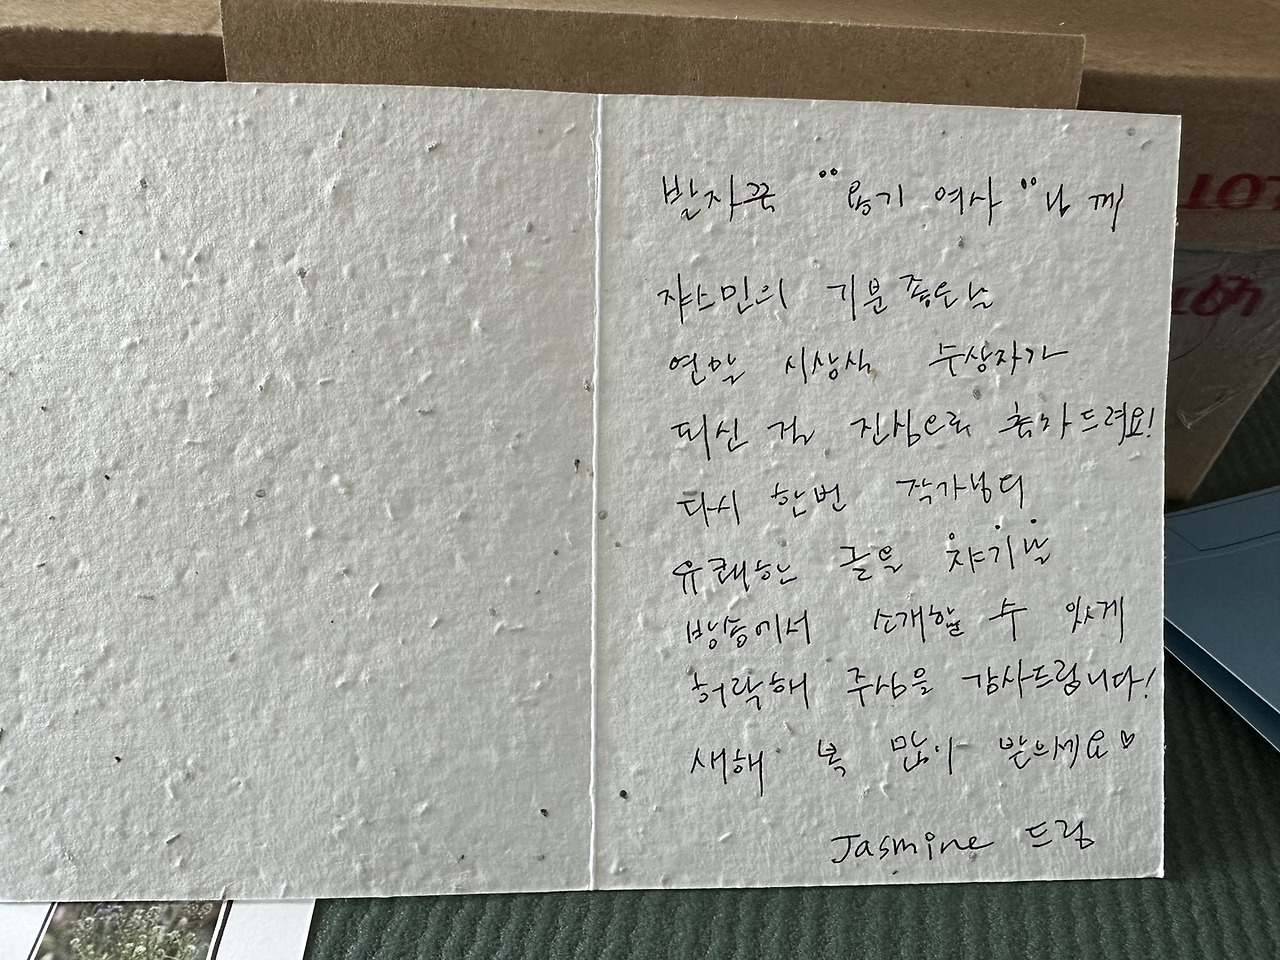 발자국 "용기 여사"님께
쟈스민의 기분좋은날
연말 시상식 수상자가
되신 걸 진심으로 축하드려요!
다시 한번 작가님의
유쾌한 글을
방송에서 소개할 수 있게
허락해 주심을 감사드립니다!
새해 복 많이 받으세요♡
Jasmine 드림
LOT
LOT